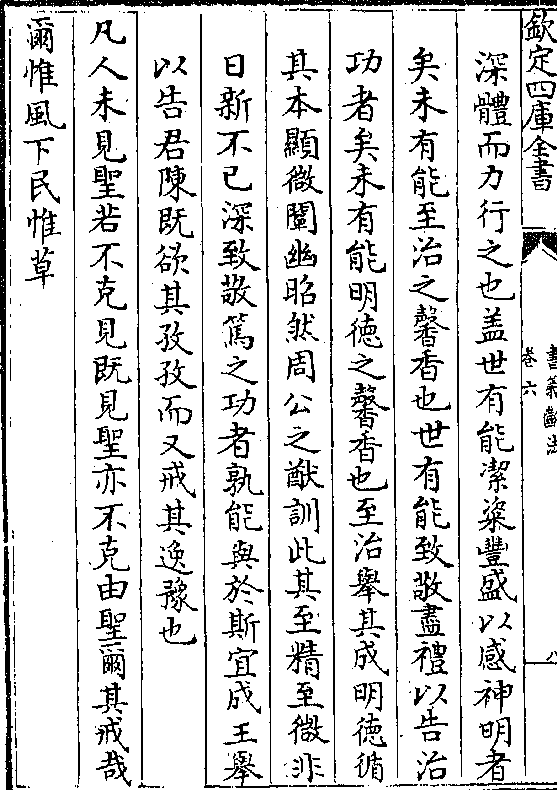 欽定四庫全書
卷六
深體而力行之也盖世有能潔粢豐盛以感神明者
矣未有能至治之馨香也世有能致敬盡禮以告治
功者矣未有能明徳之馨香也至治舉其成明徳循
其本顯微闡幽昭然周公之猷訓此其至精至微非
日新不已深致敬篤之功者孰能與於斯宜成王舉
以告君陳既欲其孜孜而又戒其逸豫也
凡人未見聖若不克見既見聖亦不克由聖爾其戒哉
爾惟風下民惟草